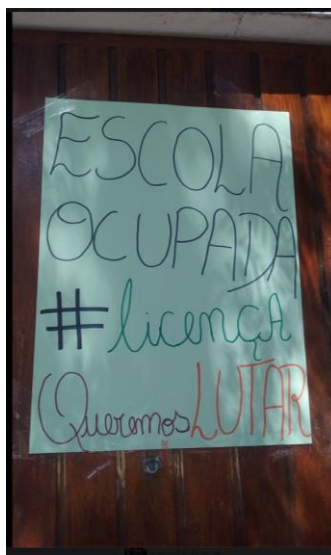 ESCOLA
OCUPADA
#licençA
Queremos LUTAR